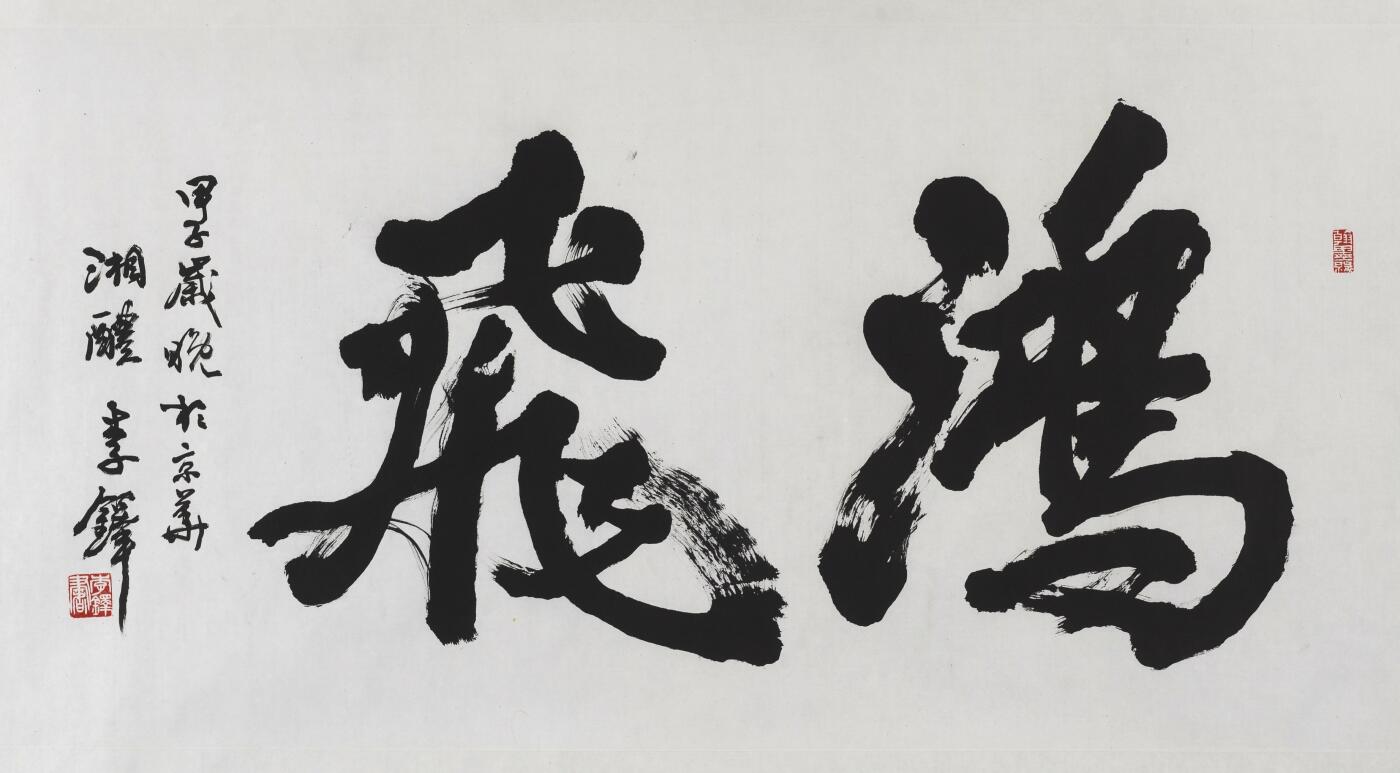 鴻飛
甲子歲晚於京華
湘醴李鐸
李鐸書